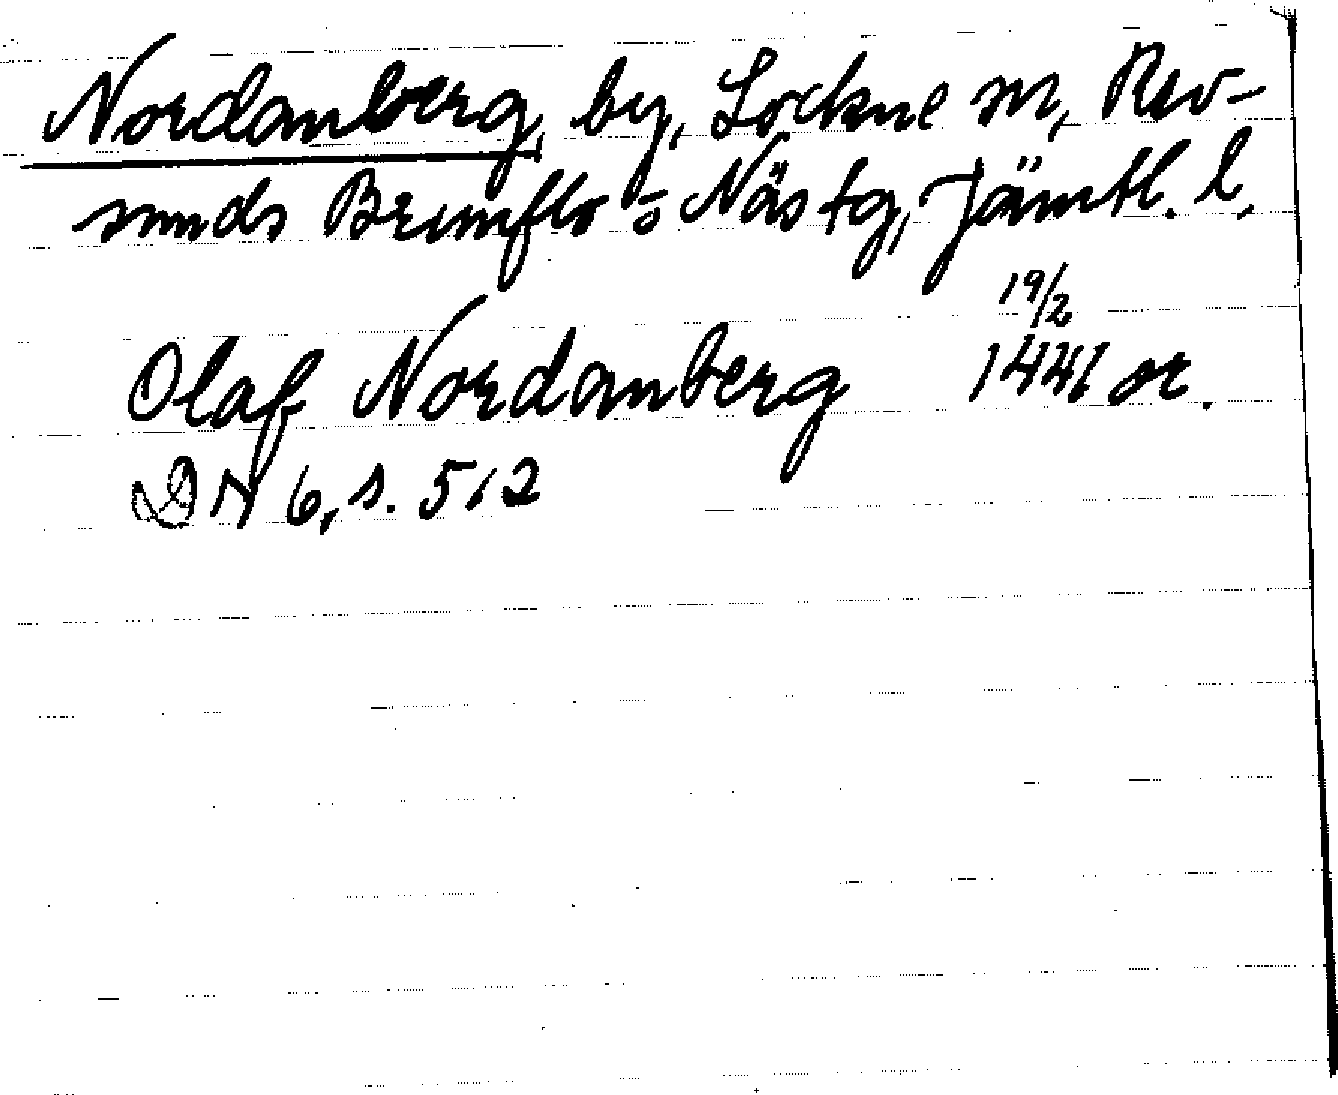 Nordanberg, by, Lockne sn, Rev-
sunds Brunflo o Näs tg, Jämtl. l.
19/2
Olaf Nordanberg 1441 or.
DN 6, s. 512